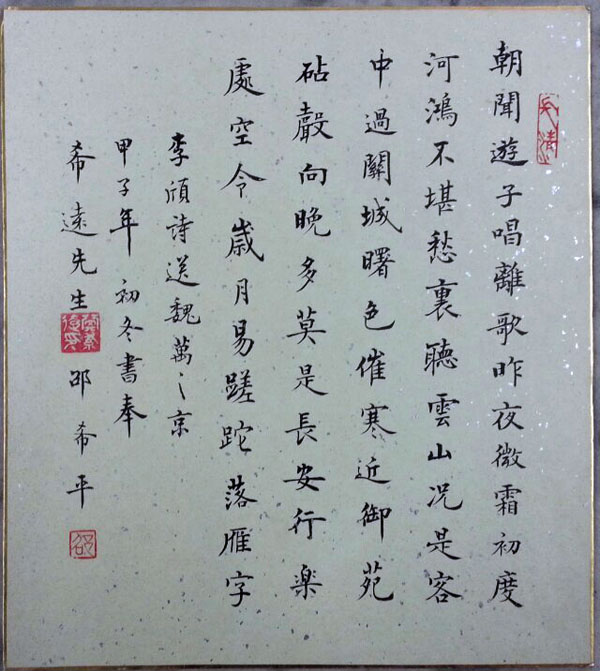 朝聞遊子唱離歌昨夜微霜初度
河鴻不堪愁裏聽雲山况是客
中過關城曙色催寒近御苑
砧聲向晚多莫是長安行楽
處空令歲月易蹉跎落雁字
李頎詩送魏萬之京
甲子年初冬書奉
希遠先生 邵希平
邵